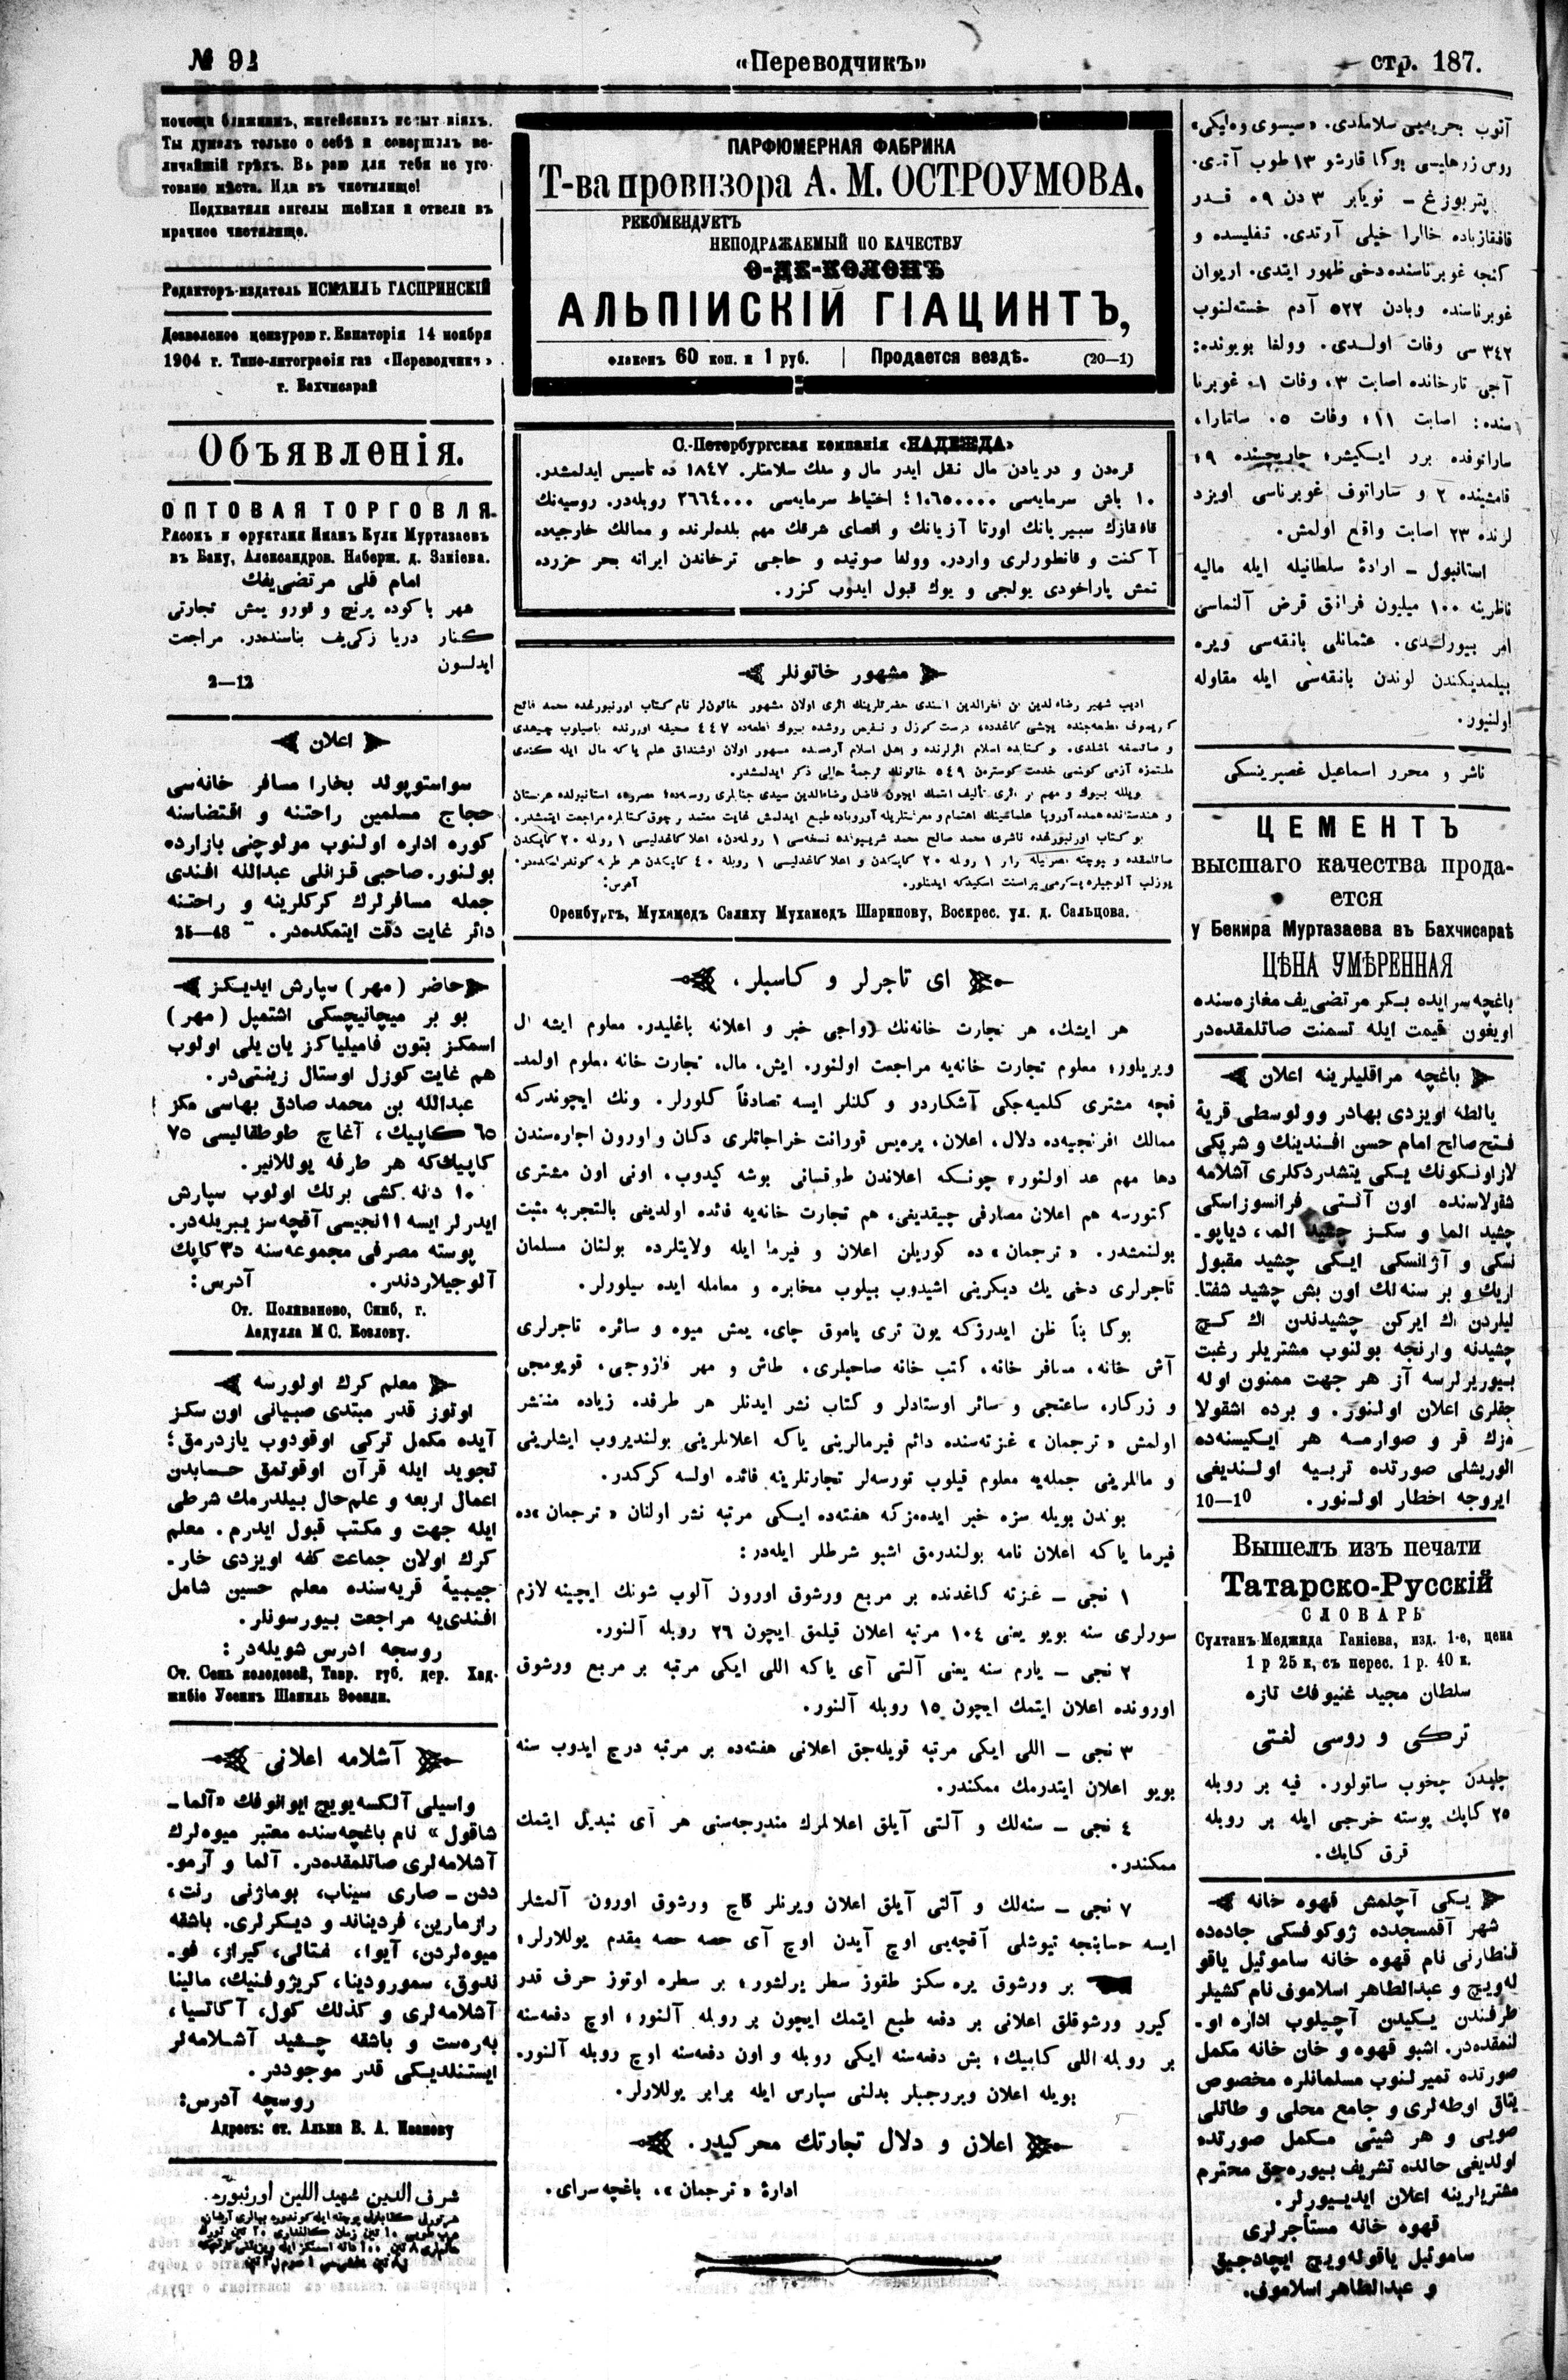 № 92
«Переводчикъ»
стр. 187.
помощи ближнимъ, житейскихъ испытаніяхъ.
Ты думалъ только о себѣ и совершилъ ве-
личайшій грѣхъ. Въ раю для тебя не уго-
товано мѣста. Иди въ чистилище!
Подхватили ангелы шейхан и отвели въ
мрачное чистилище.
Редакторъ-издатель ИСМАИЛЪ ГАСПРИНСКІЙ
Дозволено цензурою г. Евпаторія 14 ноября
1904 г. Типо-литографія газ «Переводчикъ»
г. Бахчисарай
Объявленія.
ОПТОВАЯ ТОРГОВЛЯ.
Рисомъ и фруктами Имамъ Кули Муртазаевъ
въ Баку, Александров. Набереж. д. Закіева.
امام قلی مرتضی یفك
شهر باکوده پرنچ و قورو یمش تجارتی
کنار دریا زکی‌یف بناسنده‌در. مراجعت
ایدلسون
2—12
اعلان
سواستوپولد بخارا مسافر خانه‌سی
حجاج مسلمین راحتنه و اقتضاسنه
کوره اداره اولنوب مولوچنی بازارده
بولنور. صاحبی قزانلی عبدالله افندی
جمله مسافرلرك کرکلرینه و راحتنه
دائر غایت دقت ایتمکده‌در. 25—48
حاضر (مهر) سپارش ایدیکز
بو بر میچانیچسکی اشتمپل (مهر)
اسمکز بتون فامیلیاکز یان یلی اولوب
هم غایت کوزل اوستال زینتی‌در.
عبدالله بن محمد صادق بهاسی مکز
٦٥ کاپیك، آغاچ طوطقالیسی ٧٥
کاپیك‌که هر طرفه یوللانیر.
١٠ دانه کشی برلك اولوب سپارش
ایدرلر ایسه ١١نجیسی آقچه‌سز یبریله‌در.
پوسته مصرفی مجموعه‌سنه ٣٥ کاپك
آلوجیلاردندر. آدرس:
Ст. Поливаново, Симб, г.
Авдулла М С. Козлову.
معلم کرك اولورسه
اوتوز قدر مبتدی صبیانی اون سکز
آیده مکمل ترکی اوقودوب یازدرمق؛
تجوید ایله قرآن اوقوتمق حسابدن
اعمال اربعه و علم‌حال بیلدرمك شرطی
ایله جهت و مکتب قبول ایدرم. معلم
کرك اولان جماعت کفه اویزدی خار-
جیبیة قریه‌سنده معلم حسین شامل
افندی‌یه مراجعت بیورسونلر.
روسجه ادرس شویله‌در:
Ст. Семь колодезей, Тавр. губ. дер. Хад-
жибіе Усеинъ Шамиль Эфенди.
آشلامه اعلانی
واسیلی آلکسه‌یویچ ایوانوفك «آلما-
شاقول» نام باغچه‌سنده معتبر میوه‌لرك
آشلامه‌لری صاتلمقده‌در. آلما و آرمو-
ددن - صاری سیناب، بوماژنی رنت،
رازمارین، فردیناند و دیکرلری. باشقه
میوه‌لردن، آیوا، شفتالی، کیراز، فو-
ندوق، سمورودینا، کریژوفنیك، مالینا
آشلامه‌لری و کذلك کول، آکاتسیا،
به‌ره‌ست و باشقه چشید آشلامه‌لر
ایستنلدیکی قدر موجوددر.
روسچه آدرس:
Адресъ: ст. Альма В. А. Иванову
شرف الدین شهید اللین اورنبورد.
ПАРФЮМЕРНАЯ ФАБРИКА
Т-ва провизора А. М. ОСТРОУМОВА.
РЕКОМЕНДУЕТЪ
НЕПОДРАЖАЕМЫЙ ПО КАЧЕСТВУ
О-ДЕ-КОЛОНЪ
АЛЬПІЙСКІЙ ГІАЦИНТЪ,
флаконъ 60 коп. и 1 руб. | Продается вездѣ. (20—1)
С.-Петербургская компанія «НАДЕЖДА»
قره‌دن و دریادن مال نقل ایدر مال و ملك سلامتلر. ١٨٤٧ ده تأسیس ایدلمشدر.
١٠ باش سرمایه‌سی ١٠٦٥٠٠٠٠؛ احتیاط سرمایه‌سی ٢٦٦٤٠٠٠ روبله‌در. روسیه‌نك
قافقازك سبیریانك اورتا آزیانك و اقصای شرقك مهم بلده‌لرنده و ممالك خارجیه‌ده
آکنت و قانطورلری واردر. وولغا صوئیده و حاجی ترخاندن ایرانه بحر حزرده
تمش پاراخودی یولجی و یوك قبول ایدوب کزر.
مشهور خاتونلر
ادیب شهیر رضاءالدین بن فخرالدین افندی حضرتلرینك اثری اولان مشهور خاتون‌لر نام کتاب اورنبورغده محمد فاتح
Оренбургъ, Мухамедъ Салиху Мухамедъ Шарипову, Воскрес. ул. д. Сальцова.
ای تاجرلر و کاسبلر.
هر ایشك، هر تجارت خانه‌نك رواجی خبر و اعلانه باغلیدر. معلوم ایشه ال
ویریلور؛ معلوم تجارت خانه‌یه مراجعت اولنور. ایش، مال، تجارت خانه معلوم اولمد-
قچه مشتری کلمیه‌جکی آشکاردر و کلنلر ایسه تصادفاً کلورلر. ونك ایچوندرکه
ممالك افرنجیه‌ده دلال، اعلان، پره‌یس قورانت خراجاتلری دکان و اورون اجاره‌سندن
دها مهم عد اولنور؛ چونکه اعلاندن طوقسانی بوشه کیدوب، اونی اون مشتری
کتورسه هم اعلان مصارفی چیقدیغی، هم تجارت خانه‌یه فائده اولدیغی بالتجربه مثبت
بولنمشدر. «ترجمان» ده کوریلن اعلان و فیرما ایله ولایتلرده بولنان مسلمان
تاجرلری دخی یك دیکرینی اشیدوب بیلوب مخابره و معامله ایده بیلورلر.
بوکا بناً ظن ایدرزکه یون تری پاموق چای، یمش میوه و سائره تاجرلری
آش خانه، مسافر خانه، کتب خانه صاحبلری، طاش و مهر قازوجی، قویومجی
و زرکار، ساعتجی و سائر اوستادلر و کتاب نشر ایدنلر هر طرفده زیاده منتشر
اولمش «ترجمان» غزته‌سنده دائم فیرمالرینی یاکه اعلانلرینی بولندیروب ایشلرینی
و ماللرینی جمله‌یه معلوم قیلوب تورسه‌لر تجارتلرینه فائده اولسه کرکدر.
بوندن بویله سزه خبر ایده‌مزکه هفته‌ده ایکی مرتبه نشر اولنان «ترجمان»ده
فیرما یاکه اعلان نامه بولندرمق اشبو شرطلر ایله‌در:
١ نجی - غزته کاغدنده بر مربع ورشوق اورون آلوب شونك ایچینه لازم
سورلری سنه بویو یعنی ١٠٤ مرتبه اعلان قیلمق ایچون ٢٦ روبله آلنور.
٢ نجی - یارم سنه یعنی آلتی آی یاکه اللی ایکی مرتبه بر مربع ورشوق
اورونده اعلان ایتمك ایچون ١٥ روبله آلنور.
٣ نجی - اللی ایکی مرتبه قویله‌جق اعلانی هفته‌ده بر مرتبه درج ایدوب سنه
بویو اعلان ایتدرمك ممکندر.
٤ نجی - سنه‌لك و آلتی آیلق اعلانلرك مندرجه‌سنی هر آی تبدیل ایتمك
ممکندر.
٧ نجی - سنه‌لك و آلتی آیلق اعلان ویرنلر قاچ ورشوق اورون آلمشلر
ایسه حسابنجه تیوشلی آقچه‌یی اوچ آیدن اوچ آی حصه حصه مقدم یوللارلر؛
بر ورشوق یره سکز طقوز سطر یرلشور؛ بر سطره اوتوز حرف قدر
کیرر ورشوقلق اعلانی بر دفعه طبع ایتمك ایچون بر روبله آلنور؛ اوچ دفعه‌سنه
بر روبله اللی کاپیك؛ بش دفعه‌سنه ایکی روبله و اون دفعه‌سنه اوچ روبله آلنور.
بویله اعلان ویررجیلر بدلنی سپارس ایله برابر یوللارلر.
اعلان و دلال تجارتك محرکیدر.
ادارۀ «ترجمان»، باغچه سرای.
آتوب بحریه‌یی سلاملدی. «سیسوی وه‌لیکی»
روس زرهلیسی بوکا قارشو ١٣ طوب آتدی.
پتربورغ - نویابر ٣ دن ٩ه قدر
قافقازیاده خالرا خیلی آرتدی. تفلیسده و
کنجه غوبرناسنده دخی ظهور ایتدی. اریوان
غوبرناسنده وبادن ٥٢٢ آدم خسته‌لنوب
٣٤٢ سی وفات اولدی. وولغا بویونده:
آجی تارخانده اصابت ٣، وفات ١، غوبرنا
سنده: اصابت ١١، وفات ٥. ساتمارا،
ساراتوفده برر ایکیشر؛ چاریچینده ٩،
قامشینده ٢ و ساراتوف غوبرناسی اویزد
لرنده ٢٣ اصابت واقع اولمش.
استانبول - ارادۀ سلطانیله ایله مالیه
ناظرینه ١٠٠ میلیون فرانق قرض آلنماسی
امر بیورلدی. عثمانلی بانقه‌سی ویره
بیلمدیکندن لوندن بانقه‌سی ایله مقاوله
اولنیور.
ناشر و محرر اسماعیل غصپرینسکی
ЦЕМЕНТЪ
высшаго качества прода-
ется
у Бекира Муртазаева въ Бахчисараѣ
ЦѢНА УМѢРЕННАЯ
باغچه سرایده بکر مرتضی یف مغازه‌سنده
اویغون قیمت ایله تسمنت صاتلمقده‌در
باغچه مراقلیلرینه اعلان
یالطه اویزدی بهادر وولوسطی قریۀ
فتح‌صالح امام حسن افندینك و شریکی
لازاونکونك یکی یتشدردکلری آشلامه
شقولاسنده اون آلتی فرانسوزاسکی
چشید الما و سکز چشید الما، دیاپو-
نسکی و آژانسکی ایکی چشید مقبول
اریك و بر سنه‌لك اون بش چشید شفتا-
لیلردن اك ایرکن چشیدندن اك کچ
چشیدنه وارنجه بولنوب مشتریلر رغبت
بیوریرلرسه آز هر جهت ممنون اوله
جقلری اعلان اولنور. و برده اشقولا
مزك قر و صوارمسه هر ایکیسنه‌ده
الوریشلی صورتده تربیه اولندیغی
ایروجه اخطار اولنور. 10—10
Вышелъ изъ печати
Татарско-Русскій
СЛОВАРЬ
Султанъ-Меджида Ганіева, изд. 1-е, цена
1 р 25 к, съ перес. 1 р. 40 к.
سلطان مجید غنیوفك تازه
ترکی و روسی لغتی
چاپدن چخوب ساتولور. فیه بر روبله
٢٥ کاپك پوسته خرجی ایله بر روبله
قرق کاپك.
یکی آچلمش قهوه خانه
شهر آقمسجدده ژوکوفسکی جاده‌ده
قنطارنی نام قهوه خانه ساموئیل یاقو
له‌ویچ و عبدالطاهر اسلاموف نام کشیلر
طرفندن یکیدن آچیلوب اداره او-
لنمقده‌در. اشبو قهوه و خان خانه مکمل
صورتده تمیرلنوب مسلمانلره مخصوص
یتاق اوطه‌لری و جامع محلی و طاتلی
صویی و هر شیئی مکمل صورتده
اولدیغی حالده تشریف بیوره‌جق محترم
مشتریلرینه اعلان ایدیسیورلر.
قهوه خانه مستأجرلری
ساموئیل یاقوله‌ویچ ایچادجیق
و عبدالطاهر اسلاموف.